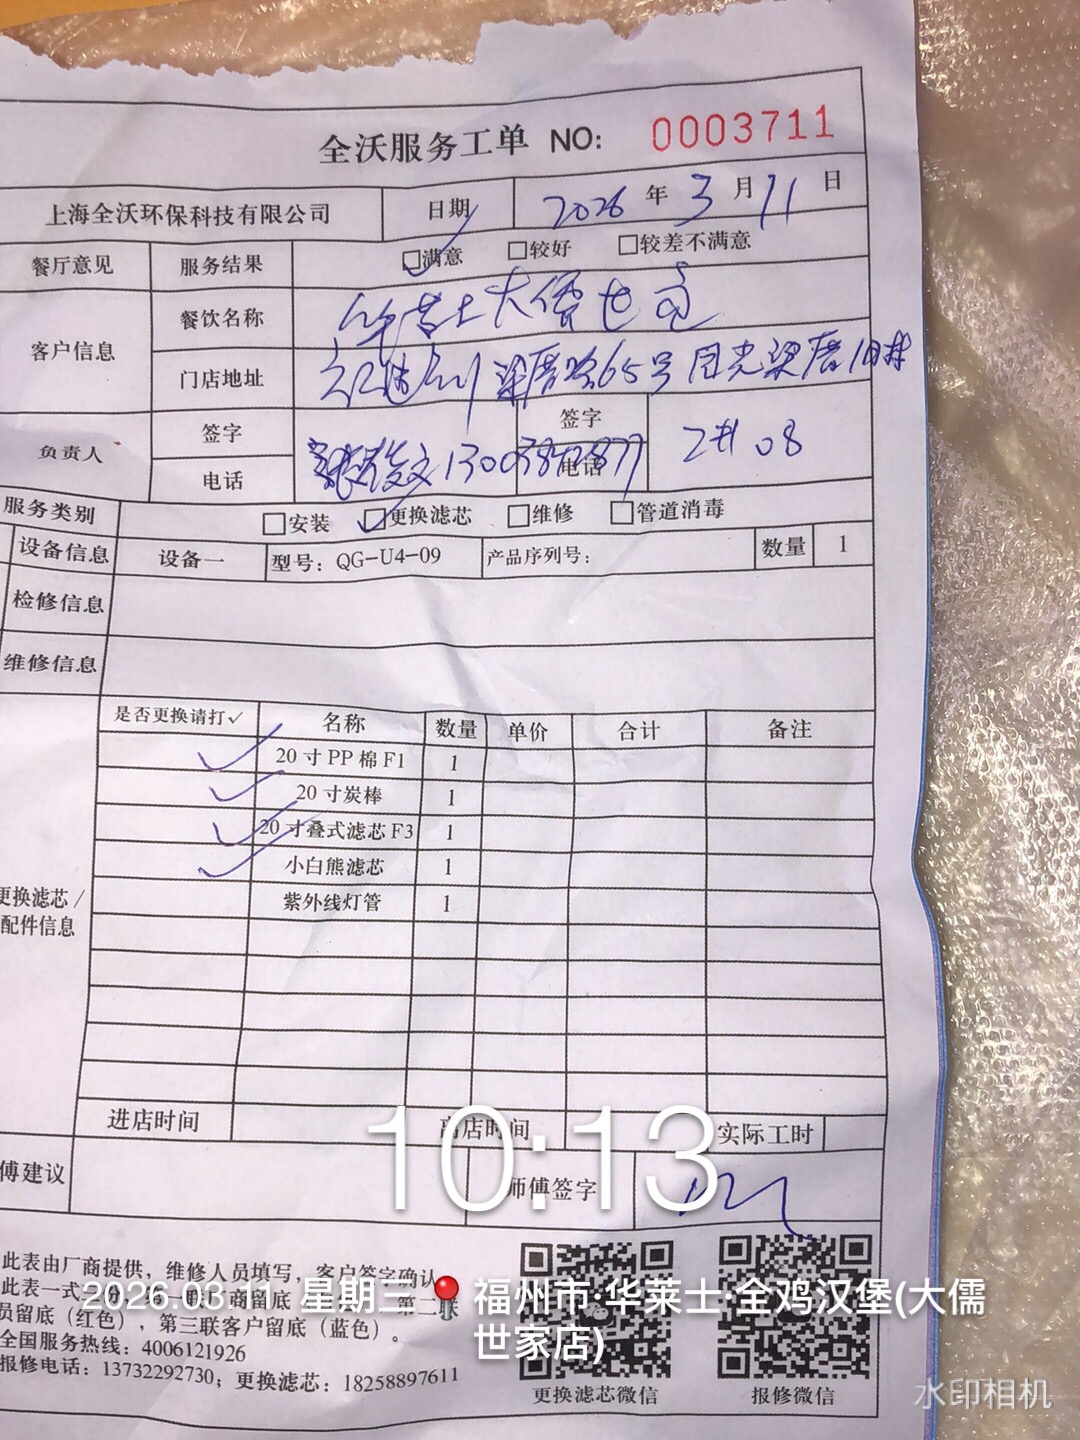 全沃服务工单 NO: 0003711
上海全沃环保科技有限公司 日期 2026 年 3 月 11 日
餐厅意见 服务结果 ☑满意 □较好 □较差不满意
客户信息 餐饮名称 华莱士大儒世家
门店地址 65号
负责人 签字 签字 2# 08
电话 电话
服务类别 □安装 ☑更换滤芯 □维修 □管道消毒
设备信息 设备一 型号: QG-U4-09 产品序列号: 数量 1
检修信息
维修信息
是否更换请打✓ 名称 数量 单价 合计 备注
✓ 20寸PP棉F1 1
✓ 20寸炭棒 1
✓ 20寸叠式滤芯F3 1
✓ 小白熊滤芯 1
紫外线灯管 1
更换滤芯/
配件信息
进店时间 离店时间 实际工时
10:13
傅建议 师傅签字
此表由厂商提供，维修人员填写，客户签字确认
此表一式 商留底 第二联
员留底（红色），第三联客户留底（蓝色）。
全国服务热线: 4006121926
报修电话: 13732292730; 更换滤芯: 18258897611
更换滤芯微信 报修微信
2026.03.11 星期三 福州市·华莱士·全鸡汉堡(大儒
世家店)
水印相机